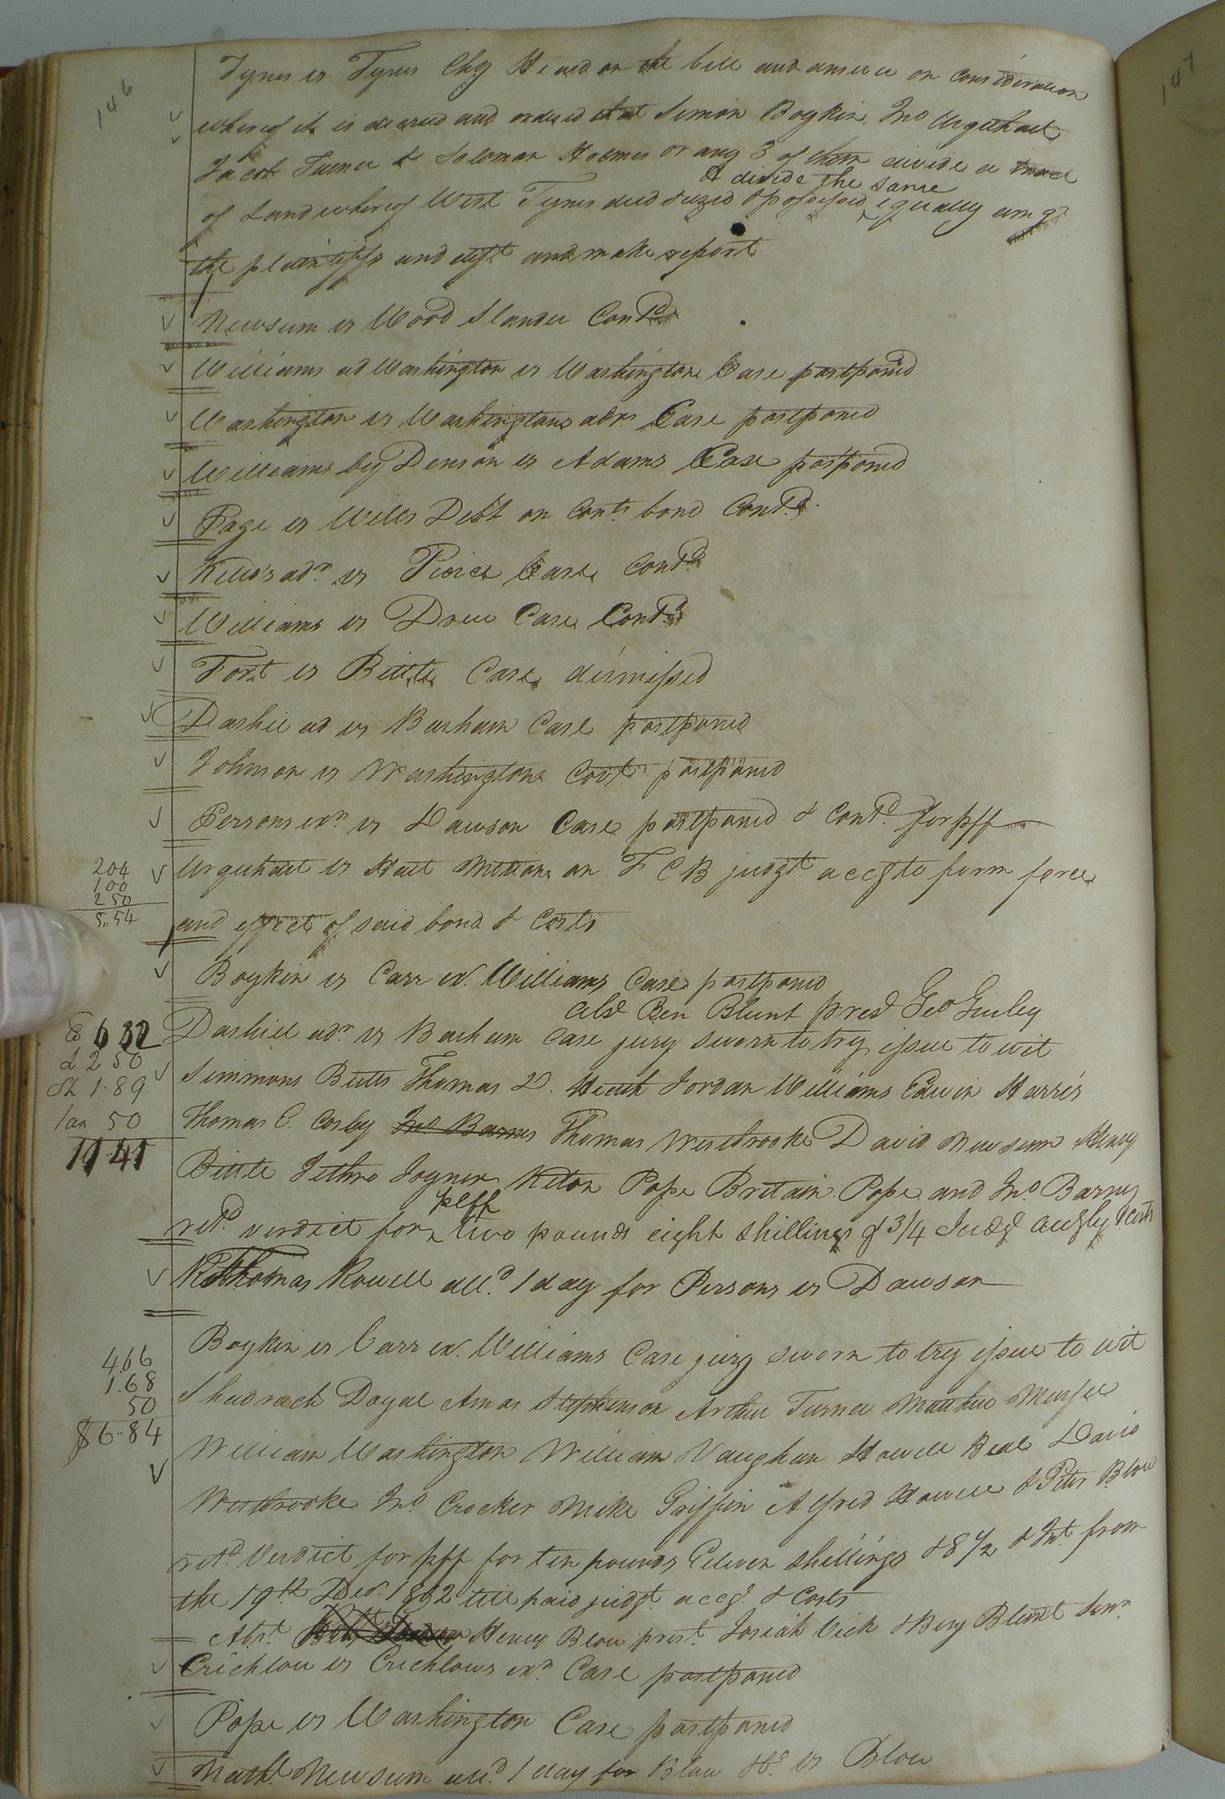 146
147
Tynes vs Tynes Chy Heard on the bill and answer on consideration
whereof it is decreed and ordered that Simon Boykin Jno Urquhart
Jacob Turner & Solomon Holmes or any 3 of them divide a tract
& divide the same
of Land whereof West Tynes decd seized & possessed equally amg
the plaintiffs and deft and make report
Newsum vs Wood Slander Contd
Williams ad Washington vs Washington Case postponed
Washington vs Washingtons adr Case postponed
Williams by Denson vs Adams Case postponed
Page vs Wills Debt on Conts bond Contd
Kello's adr vs Pierce Case Contd
Williams vs Drew Case Contd
Fort vs Bittle Case dismissed
Dashiel ad vs Barham Case postponed
Johnson vs Washington Covt postponed
Persons exr vs Lawson Case postponed & Contd for pff
204
100
250
5.54
Urquhart vs Hart Motion on F C B judgt accg to form force
and effect of said bond & Costs
Boykin vs Carr ex. Williams Case postponed
Abst Ben Blunt prest Geo Gurley
Co 6 32
d 2 50
Sh 1.89
lan 50
11.41
Dashiell adr vs Barham Case jury sworn to try issue to wit
Simmons Butts Thomas D. Heath Jordan Williams Edwin Harris
Thomas C. Cosby Jno Barnes Thomas Westbrooke David Newsum Henry
Bittle Jethro Joyner Keton Pope Britain Pope and Jno Barnes
plff
retd verdict for two pounds eight shillings & 3/4 Judgt accgly & costs
Thomas Rowell alld 1 day for Persons vs Dawson
466
1.68
50
$6.84
Boykin vs Carr ex. Williams Case jury sworn to try issue to wit
Shadrach Doyal Amos Stephenson Arthur Turner Matthew
William Washington William Vaughan Howell Beal David
Westbrooke Jno Crocker Mike Griffin Alfred Howell & Peter Blow
retd Verdict for pff for ten pounds Eleven shillings & 8 1/2 & Int from
the 19th Decr 1802 till paid judgt accg & Costs
Abst Henry Blow prest Josiah Vick & Benj Blunt Senr
Crichlow vs Crichlows exr Case postponed
Pope vs Washington Case postponed
Nathl Newsum alld 1 day for Blow &c vs Blow